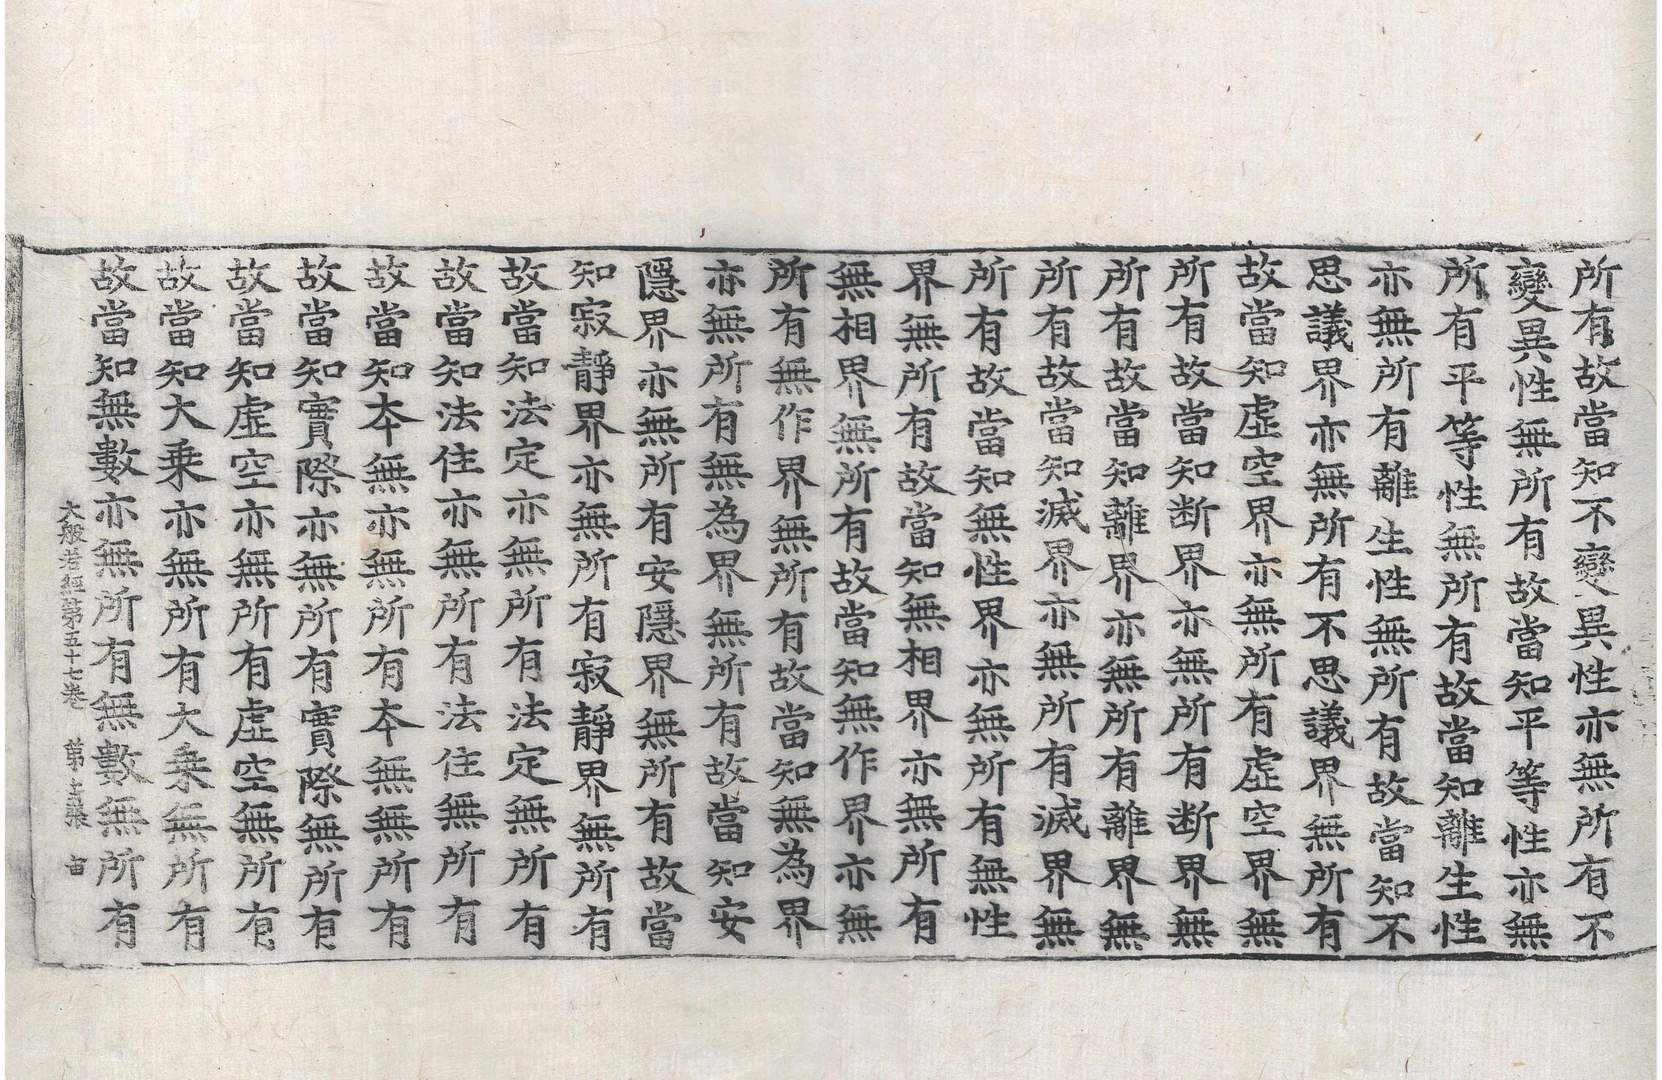 所有故當知不變異性亦無所有不
變異性無所有故當知平等性亦無
所有平等性無所有故當知離生性
亦無所有離生性無所有故當知不
思議界亦無所有不思議界無所有
故當知虛空界亦無所有虛空界無
所有故當知断界亦無所有断界無
所有故當知離界亦無所有離界無
所有故當知滅界亦無所有滅界無
所有故當知無性界亦無所有無性
界無所有故當知無相界亦無所有
無相界無所有故當知無作界亦無
所有無作界無所有故當知無為界
亦無所有無為界無所有故當知安
隱界亦無所有安隱界無所有故當
知寂靜界亦無所有寂靜界無所有
故當知法定亦無所有法定無所有
故當知法住亦無所有法住無所有
故當知本無亦無所有本無無所有
故當知實際亦無所有實際無所有
故當知虛空亦無所有虛空無所有
故當知大乗亦無所有大乗無所有
故當知無數亦無所有無數無所有
大般若經第五十七卷 第 張 宙